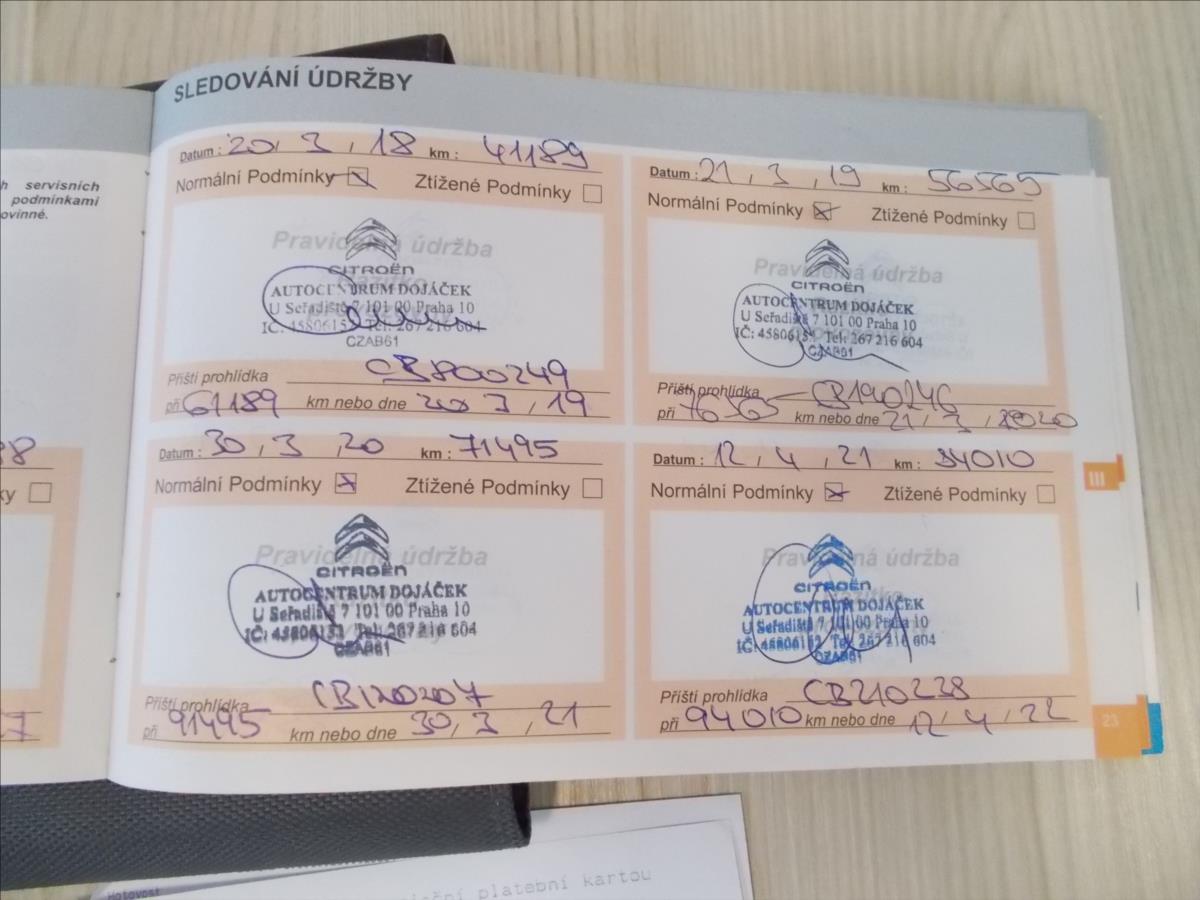 SLEDOVÁNÍ ÚDRŽBY
h servisních
podmínkami
ovinné.
Datum : 20, 3, 18 km : 41189
Normální Podmínky Ztížené Podmínky
Pravidelná údržba
CITROËN
AUTOCENTRUM DOJÁČEK
U Seřadiště 7 101 00 Praha 10
IČ: 45806152 Tel: 267 216 604
CZAB61
Příští prohlídka CB800249
při 61189 km nebo dne 20 3, 19
Datum : 21, 3, 19 km : 56565
Normální Podmínky Ztížené Podmínky
Pravidelná údržba
CITROËN
AUTOCENTRUM DOJÁČEK
U Seřadiště 7 101 00 Praha 10
IČ: 45806152 Tel: 267 216 604
CZAB61
Příští prohlídka CB190246
při 76565 km nebo dne 21, 3, 2020
Datum : 30, 3, 20 km : 71495
Normální Podmínky Ztížené Podmínky
Pravidelná údržba
CITROËN
AUTOCENTRUM DOJÁČEK
U Seřadiště 7 101 00 Praha 10
IČ: 45806152 Tel: 267 216 604
CZAB61
Příští prohlídka CB120207
při 91495 km nebo dne 30, 3, 21
Datum : 12, 4, 21 km : 84010
Normální Podmínky Ztížené Podmínky
Pravidelná údržba
CITROËN
AUTOCENTRUM DOJÁČEK
U Seřadiště 7 101 00 Praha 10
IČ: 45806152 Tel: 267 216 604
CZAB61
Příští prohlídka CB210228
při 94010 km nebo dne 12, 4, 22
III
23
Hotovost
platební kartou